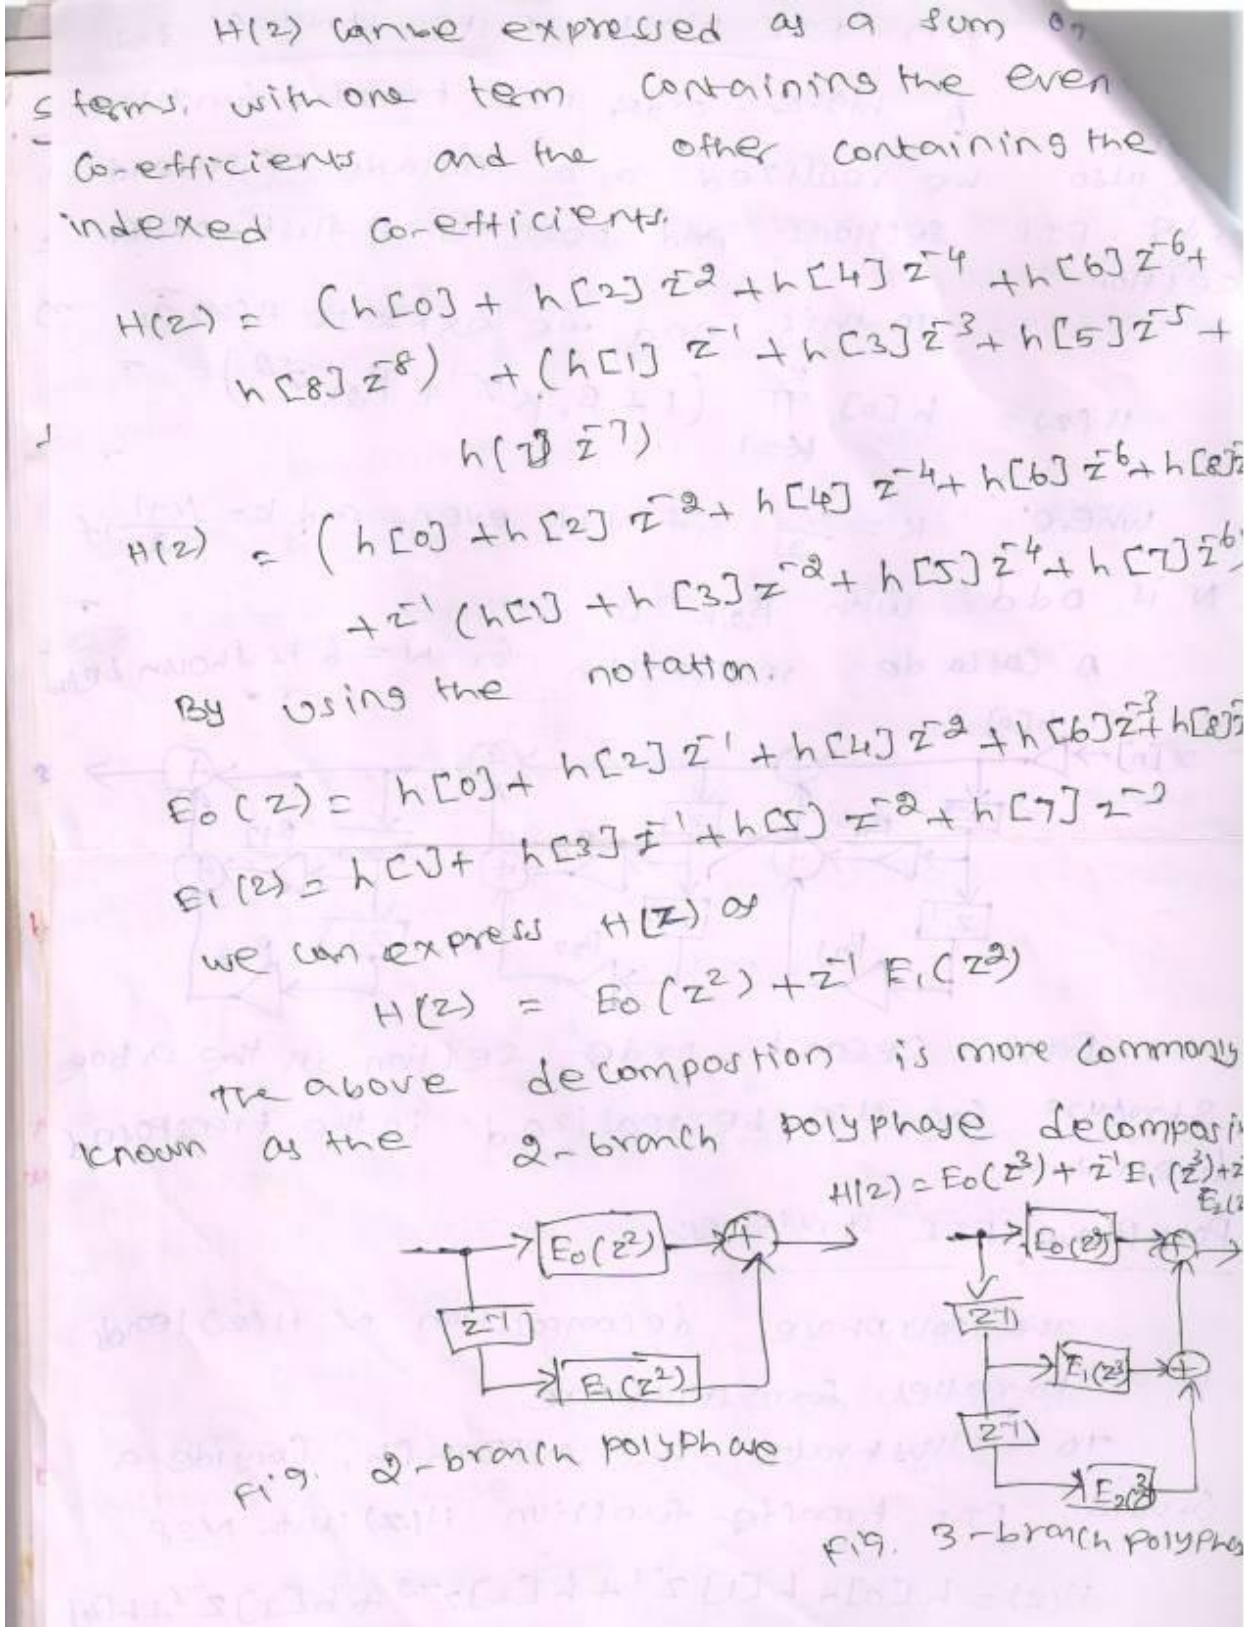 H(z) canbe expressed as a sum on
s terms. with one term containing the even
Co-efficients and the other containing the
indexed co-efficients.
H(z) = (h[0] + h[2] z^-2 + h[4] z^-4 + h[6] z^-6 +
h[8] z^-8) + (h[1] z^-1 + h[3] z^-3 + h[5] z^-5 +
h[7] z^-7)
H(z) = (h[0] + h[2] z^-2 + h[4] z^-4 + h[6] z^-6 + h[8] z
+ z^-1 (h[1] + h[3] z^-2 + h[5] z^-4 + h[7] z^-6)
By using the notation.
E0(z) = h[0] + h[2] z^-1 + h[4] z^-2 + h[6] z^-3 + h[8] z
E1(z) = h[1] + h[3] z^-1 + h[5] z^-2 + h[7] z^-3
we can express H(z) as
H(z) = E0(z^2) + z^-1 E1(z^2)
The above decomposition is more commonly
known as the 2-branch polyphase decomposi
H(z) = E0(z^3) + z^-1 E1(z^3) + z
E2(z
E0(z^2) +
z^-1
E1(z^2)
Fig. 2-branch polyphase
E0(z^3) +
z^-1
E1(z^3) +
z^-1
E2(z^3)
Fig. 3-branch polypha